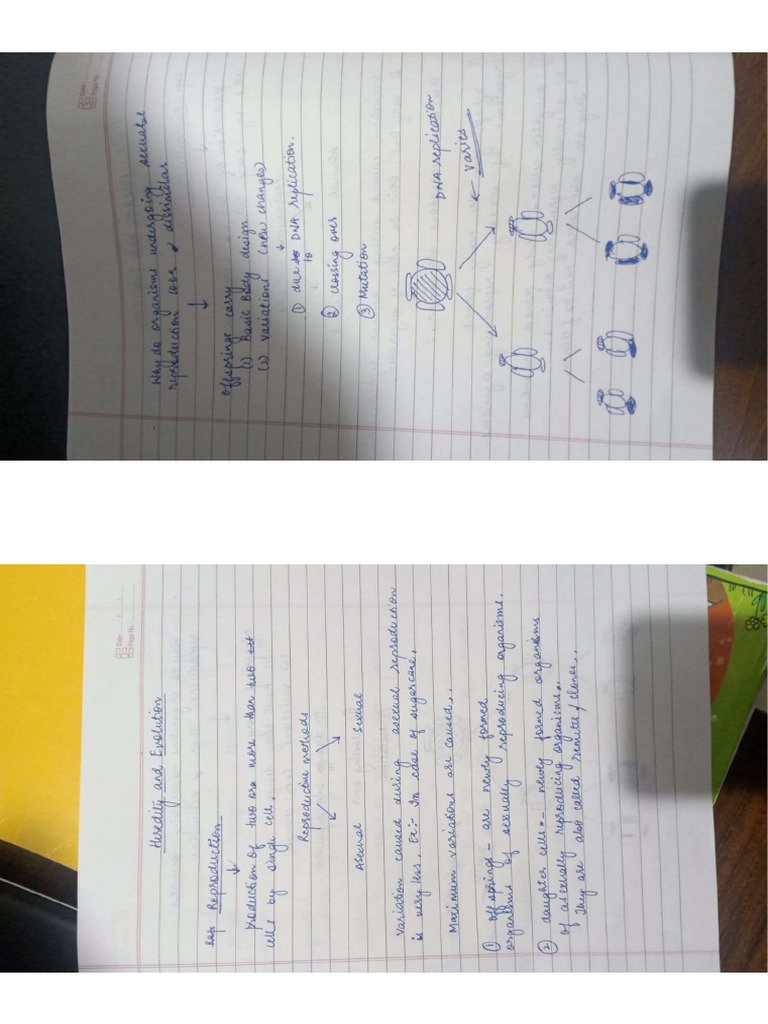 Date : / /
Page No :
Heredity and Evolution
Reproduction
↓
production of two or more than two
cells by single cell,
Reproductive methods
Asexual Sexual
Variation caused during asexual reproduction
is very less, Ex:- In case of sugarcane,
Maximum variations are caused,,
① offsprings - are newly formed
organisms of sexually reproducing organisms.
② daughter cells - newly formed organisms
of asexually reproducing organisms,,
They are also called / clones,,
Date
Page No
Why do organisms undergoing sexual
reproduction dissimilar
↓
offsprings carry
(1) Basic Body design
(2) Variations (new changes)
↓
① due to DNA replication.
② crossing over
③ Mutation
DNA replication
← varies